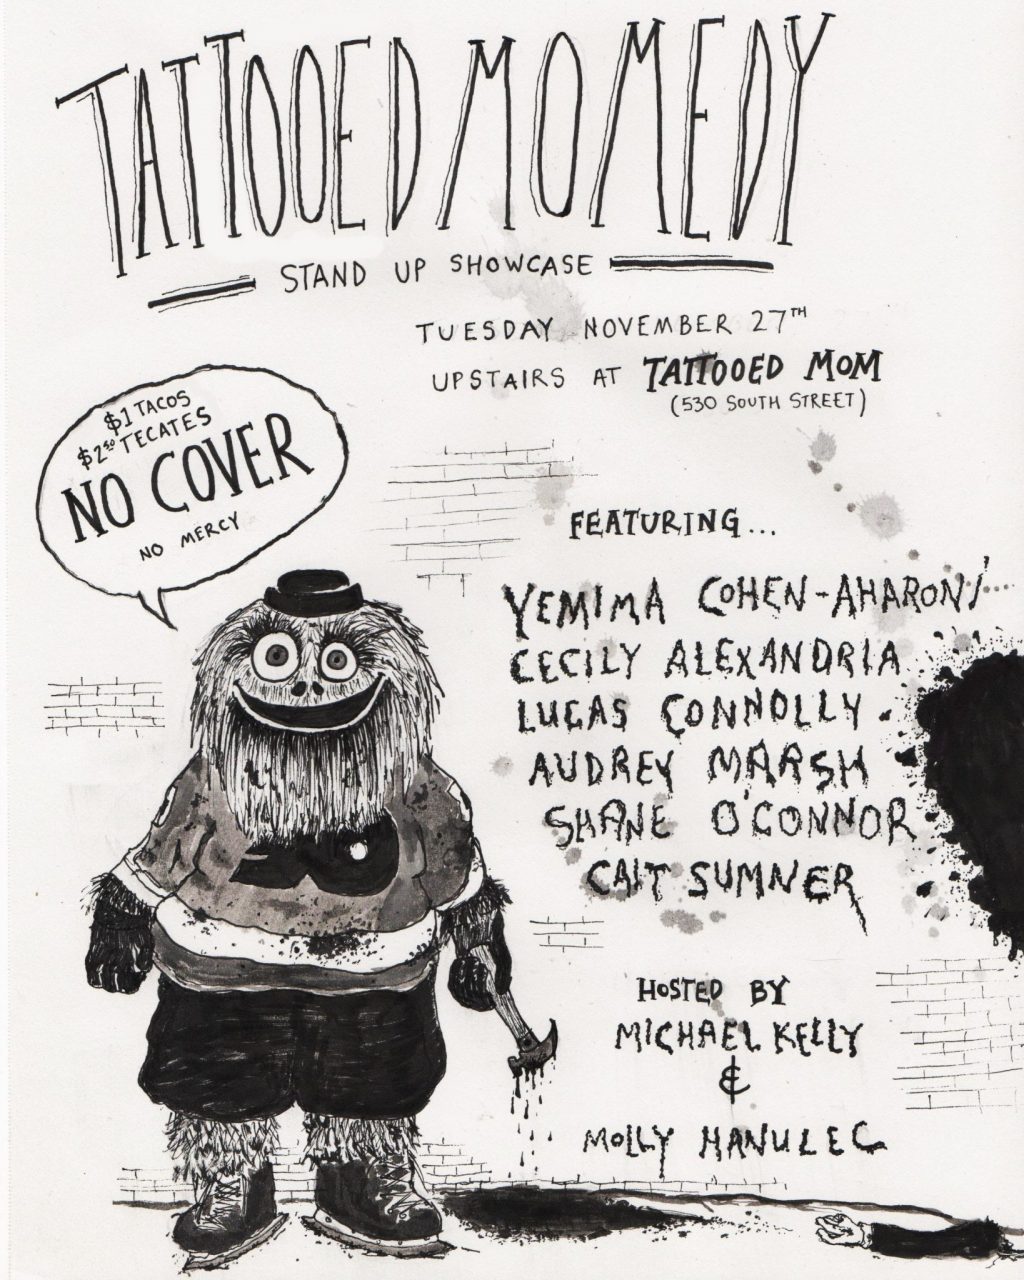 TATTOOED MOMEDY
STAND UP SHOWCASE
TUESDAY NOVEMBER 27TH
UPSTAIRS AT TATTOOED MOM
(530 SOUTH STREET)
$1 TACOS
$2.50 TECATES
NO COVER
NO MERCY
FEATURING...
YEMIMA COHEN-AHARONI
CECILY ALEXANDRIA
LUCAS CONNOLLY
AUDREY MARSH
SHANE O'CONNOR
CAIT SUMNER
HOSTED BY
MICHAEL KELLY
&
MOLLY HANULEC